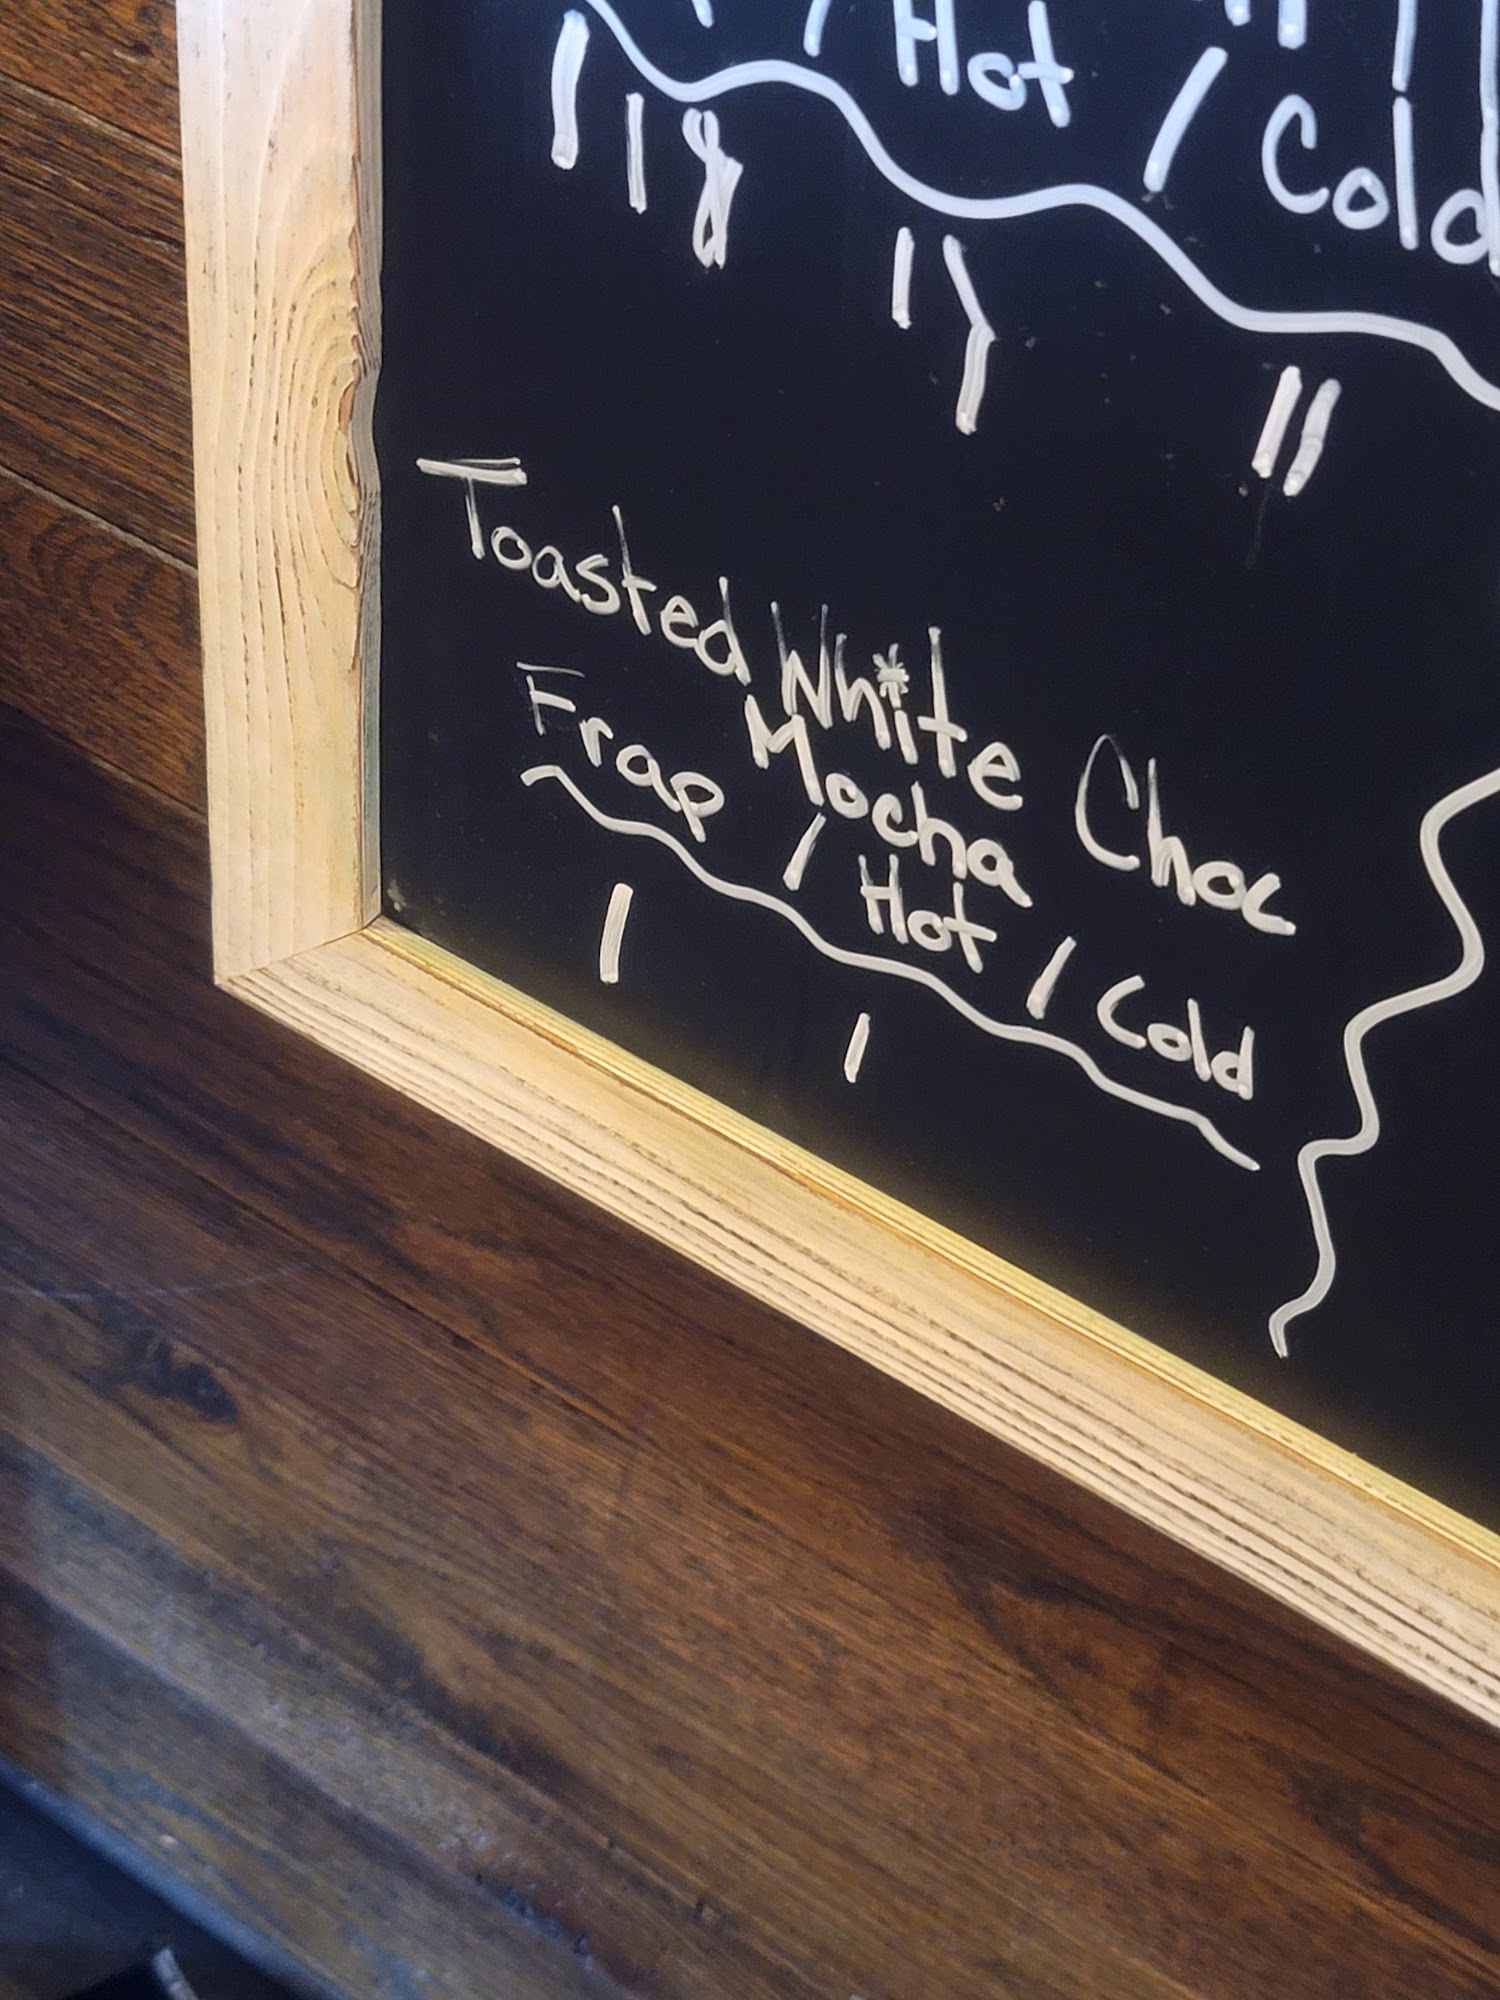 Hot / Cold
Toasted White Choc
Mocha
Frap / Hot / Cold